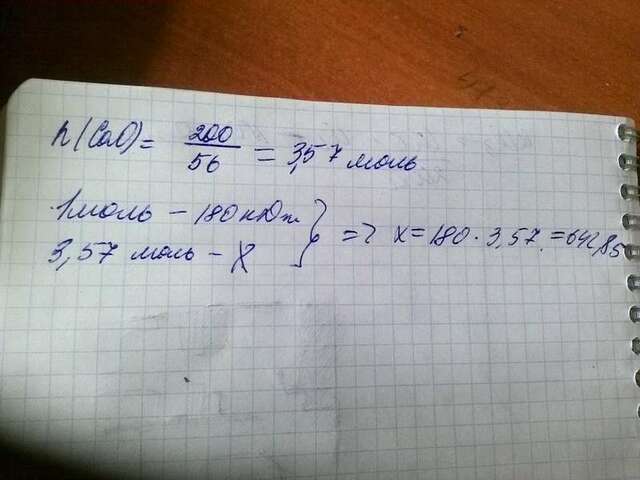 n(CaO) = 200/56 = 3,57 моль
1 моль – 180 кДж
3,57 моль – X } => X = 180 · 3,57 = 642,85